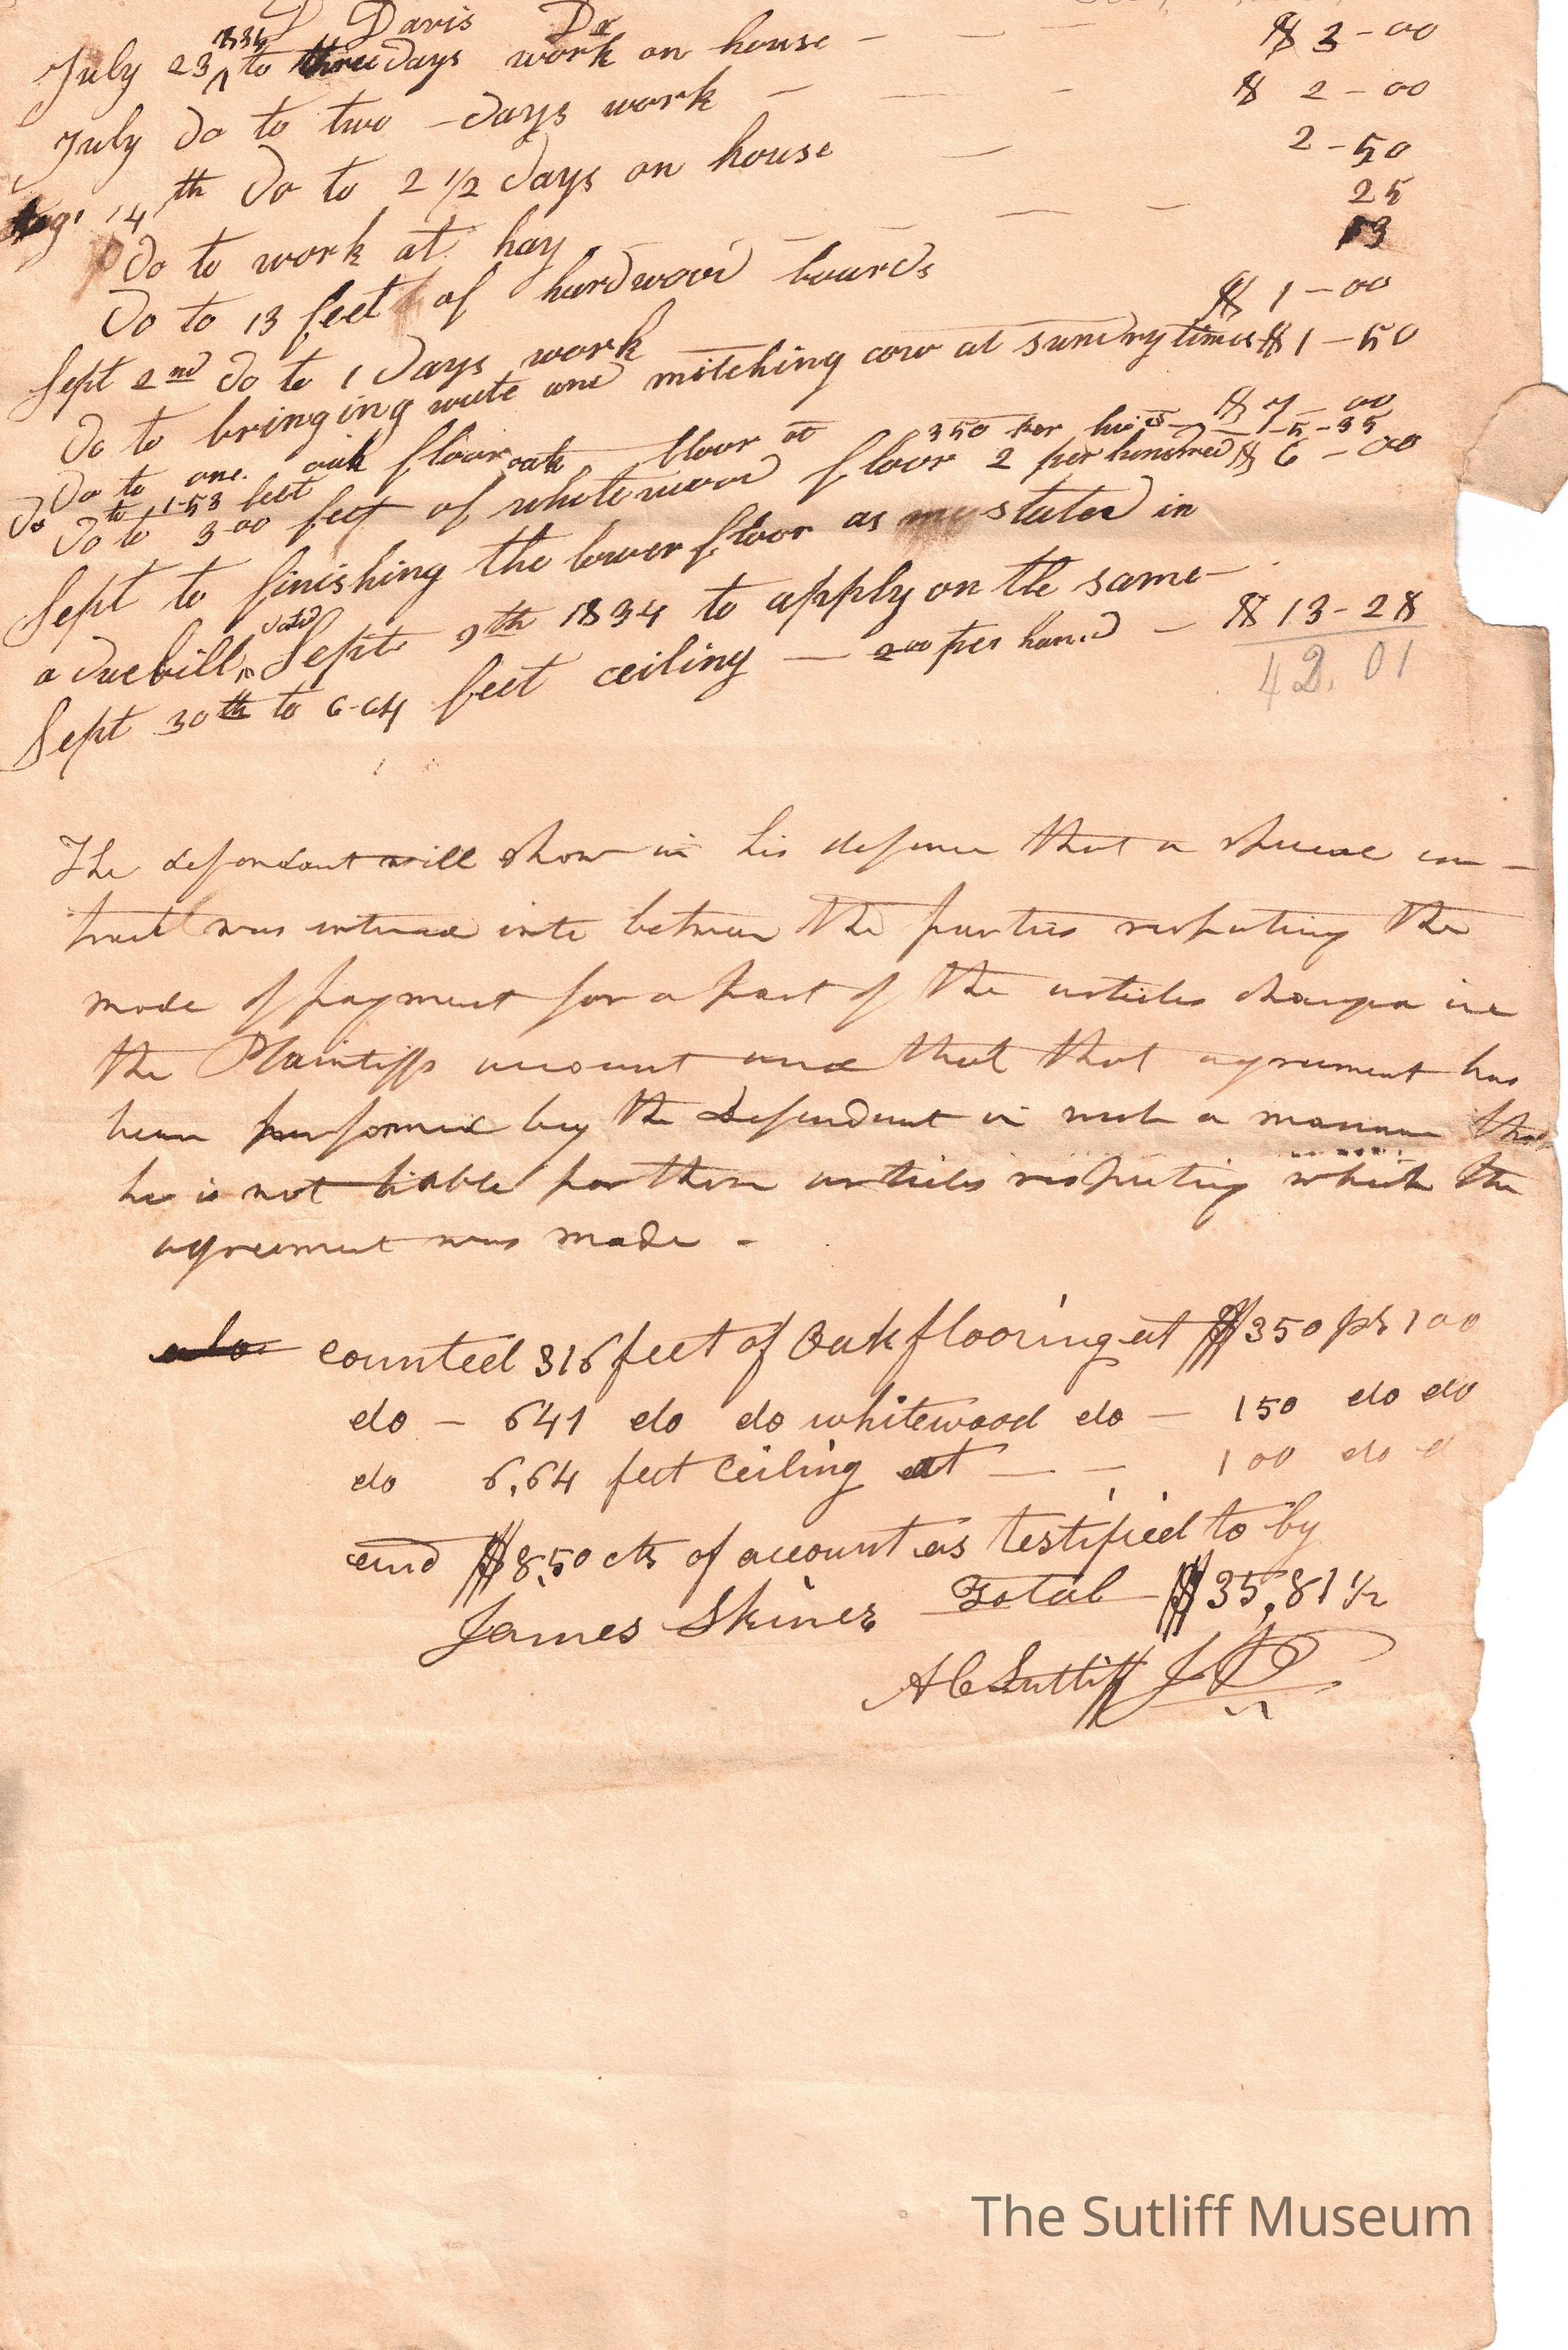 D Davis Dr
July 23 1834 to three days work on house - $ 3-00
July do to two - days work - $ 2-00
Aug' 14th do to 2 1/2 days on house - 2-50
do to work at hay - 25
do to 13 feet of hardwood bourds 13
Sept 2nd do to 1 days work $ 1-00
do to bringing wute and milching cow at sundry times $ 1-50
do to one oak floor $ 7-00
do to 1-53 feet oak floor at 350 per hund - $ 5-35
do to 3-00 feet of whitewood floor 2 per hundred $ 6-00
Sept to finishing the lower floor as stated in
a duebill, datd Sept 9th 1834 to apply on the same -
Sept 30th to 6-64 feet ceiling - 200 per hund - $ 13-28
42.01
The defendant will show in his defence that a special con-
tract was entered into between the parties respecting the
mode of payment for a part of the articles charged in
the Plaintiffs account and that that agreement has
been performed by the defendant in such a manner that
he is not liable for those articles respecting which the
agreement was made -
also counted 316 feet of Oak flooring at $350 pr 100
do - 641 do do whitewood do - 150 do do
do 6,64 feet ceiling at - - 100 do d
and $8,50 cts of account as testified to by
James Skiner Total - $35,81 1/2
A C Sutliff J P
The Sutliff Museum